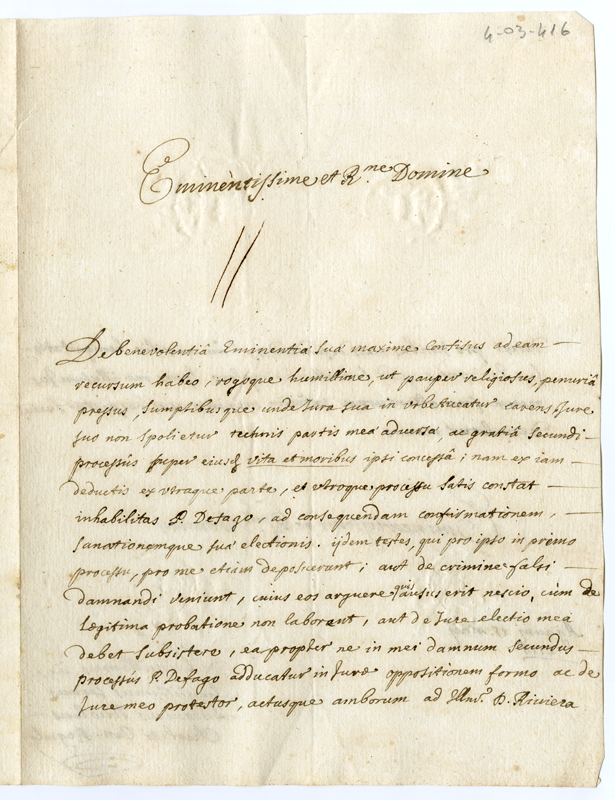 4-03-416
Eminentissime et R.me Domine
De benevolentiâ Eminentiæ suæ maxime confisus ad eam
recursum habeo, rogoque humillime, ut pauper religiosus, penuriâ
pressus, sumptibusque unde Jura sua in urbe tueatur carens, Jure
suo non spolietur technis partis meæ adversæ, ac gratiâ secundi
processûs super eiusq vita et moribus ipsi concessâ; nam ex iam
deductis ex utraque parte, et utroque processu satis constat
inhabilitas P. Defago, ad consequendam confirmationem,
sanationemque suæ electionis. ijdem testes, qui pro ipso in primo
processu, pro me etiam deposuerunt; aut de crimine falsi
damnandi veniunt, cuius eos arguere quis ausus erit nescio, cùm de
Legitima probatione non laborent, aut de Jure electio mea
debet subsistere, ea propter ne in mei damnum secundus
processus P. Defago adducatur in Jure oppositionem formo ac de
Jure meo protestor, actusque amborum ad Illm. D. Riviera